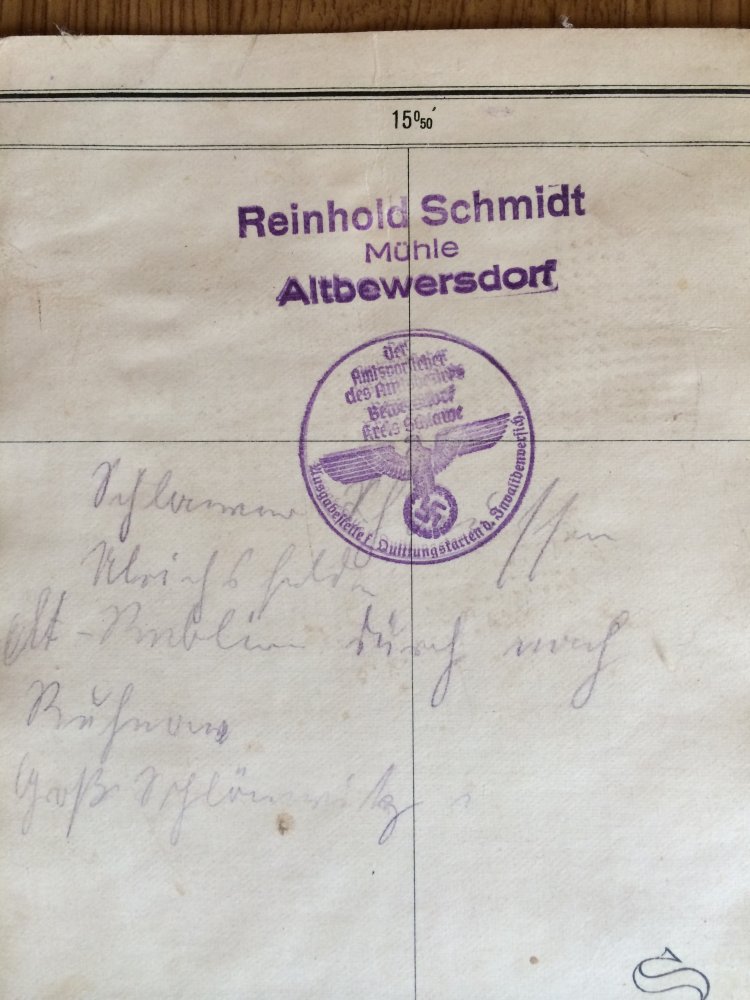 15⁰50′
Reinhold Schmidt
Mühle
Altbewersdorf
der
Amtsvorsteher
des Amtsbezirks
Bewersdorf
Kreis Schlawe
Ausgabestelle f. Quittungskarten d. Invalidenversich.
Schlawer
Ulrichsfelde
Alt - Kublitz durch nach
Ruhnow
Groß Schlönwitz
S